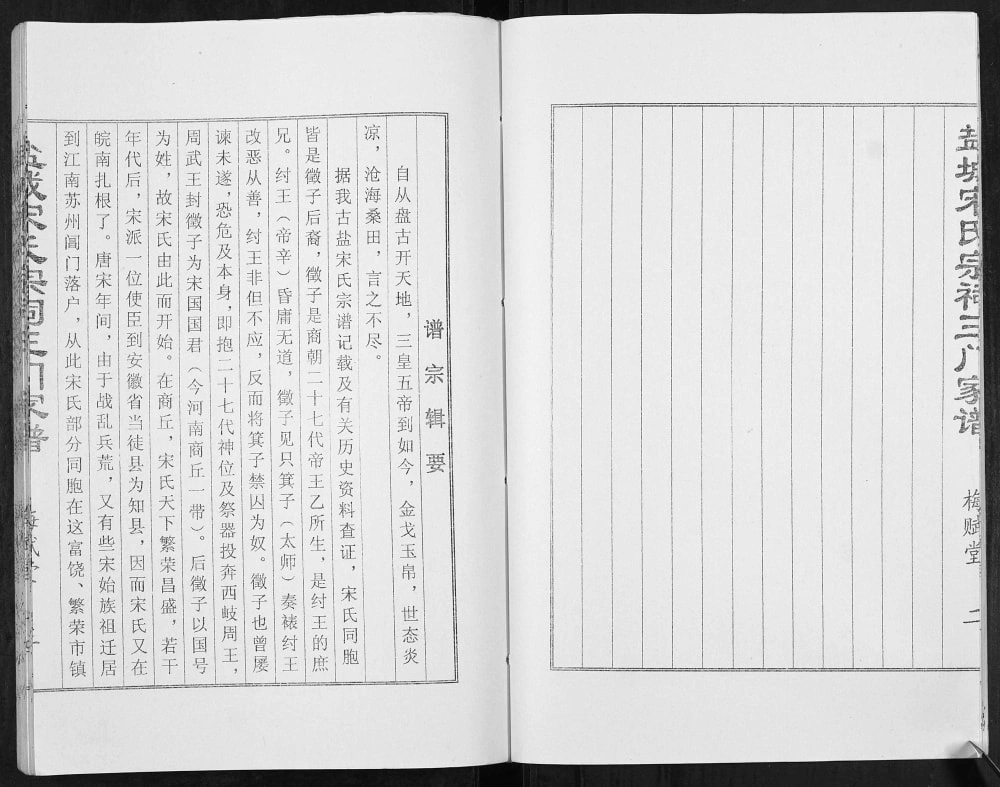 盐城宋氏宗祠三门家谱
梅赋堂
二
谱宗辑要
自从盘古开天地，三皇五帝到如今，金戈玉帛，世态炎
凉，沧海桑田，言之不尽。
据我古盐宋氏宗谱记载及有关历史资料查证，宋氏同胞
皆是徵子后裔，徵子是商朝二十七代帝王乙所生，是纣王的庶
兄。纣王（帝辛）昏庸无道，徵子见只箕子（太师）奏裱纣王
改恶从善，纣王非但不应，反而将箕子禁囚为奴。徵子也曾屡
谏未遂，恐危及本身，即抱二十七代神位及祭器投奔西岐周王，
周武王封徵子为宋国国君（今河南商丘一带）。后徵子以国号
为姓，故宋氏由此而开始。在商丘，宋氏天下繁荣昌盛，若干
年代后，宋派一位使臣到安徽省当徒县为知县，因而宋氏又在
皖南扎根了。唐宋年间，由于战乱兵荒，又有些宋始族祖迁居
到江南苏州阊门落户，从此宋氏部分同胞在这富饶、繁荣市镇
盐城宋氏宗祠三门家谱